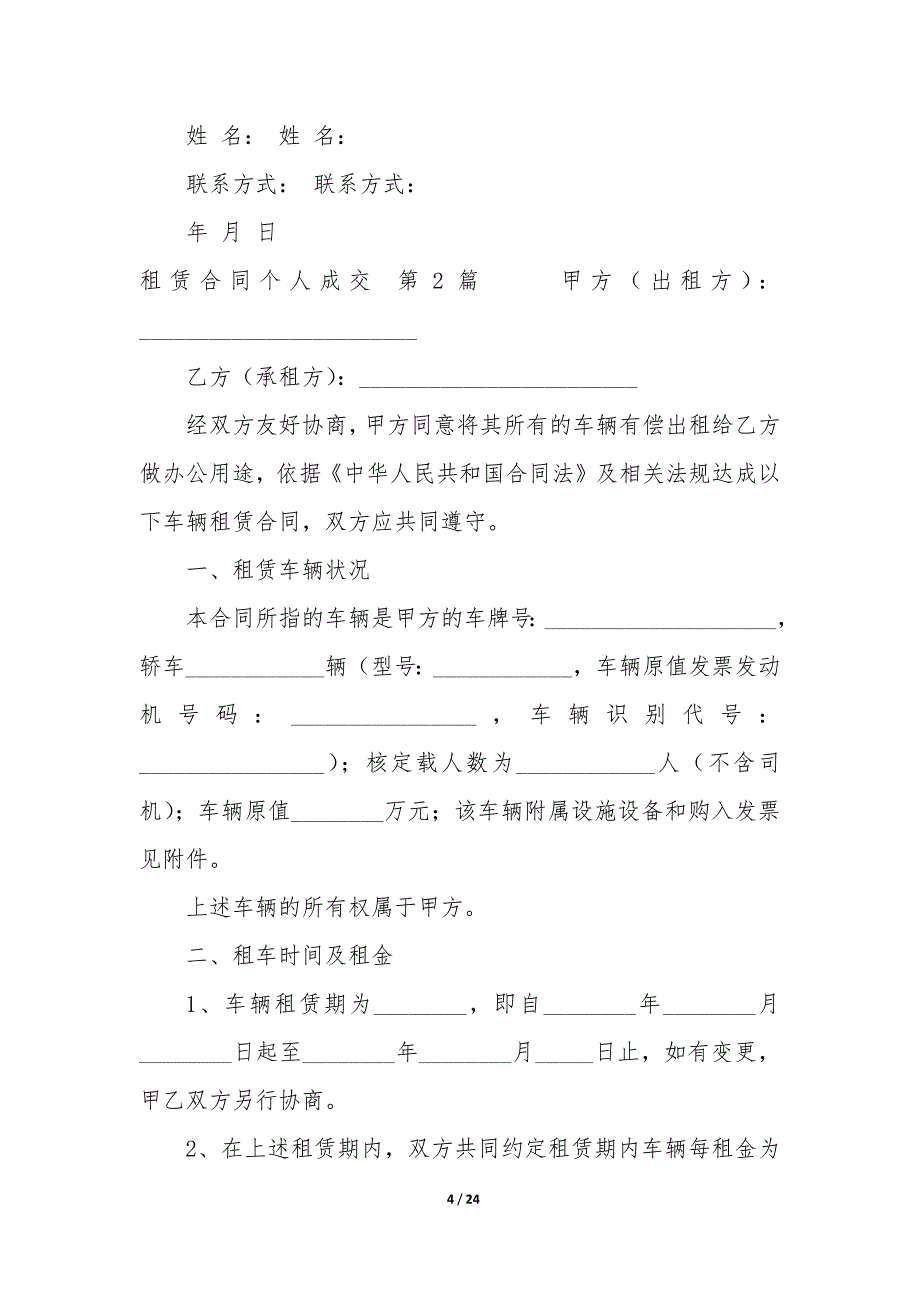 姓 名： 姓 名：
联系方式： 联系方式：
年 月 日
租赁合同个人成交 第2篇 甲方（出租方）：
________________________
乙方（承租方）：________________________
经双方友好协商，甲方同意将其所有的车辆有偿出租给乙方
做办公用途，依据《中华人民共和国合同法》及相关法规达成以
下车辆租赁合同，双方应共同遵守。
一、租赁车辆状况
本合同所指的车辆是甲方的车牌号：____________________，
轿车____________辆（型号：____________，车辆原值发票发动
机号码：________________，车辆识别代号：
________________）；核定载人数为____________人（不含司
机）；车辆原值________万元；该车辆附属设施设备和购入发票
见附件。
上述车辆的所有权属于甲方。
二、租车时间及租金
1、车辆租赁期为________，即自________年________月
________日起至________年________月_____日止，如有变更，
甲乙双方另行协商。
2、在上述租赁期内，双方共同约定租赁期内车辆每租金为
4 / 24